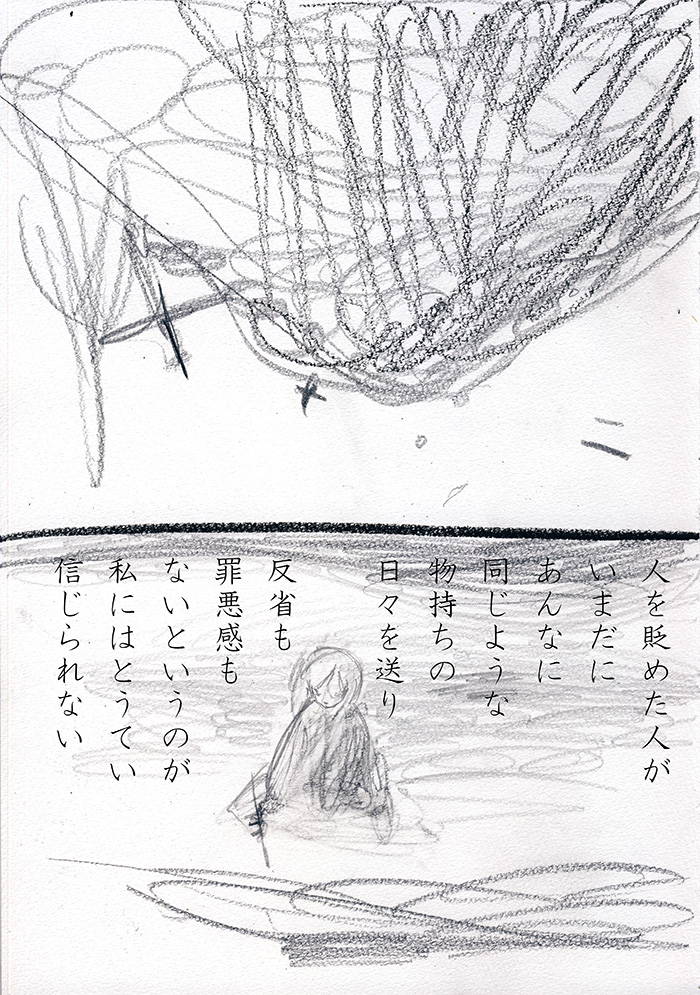 人を貶めた人が
いまだに
あんなに
同じような
物持ちの
日々を送り
反省も
罪悪感も
ないというのが
私にはとうてい
信じられない